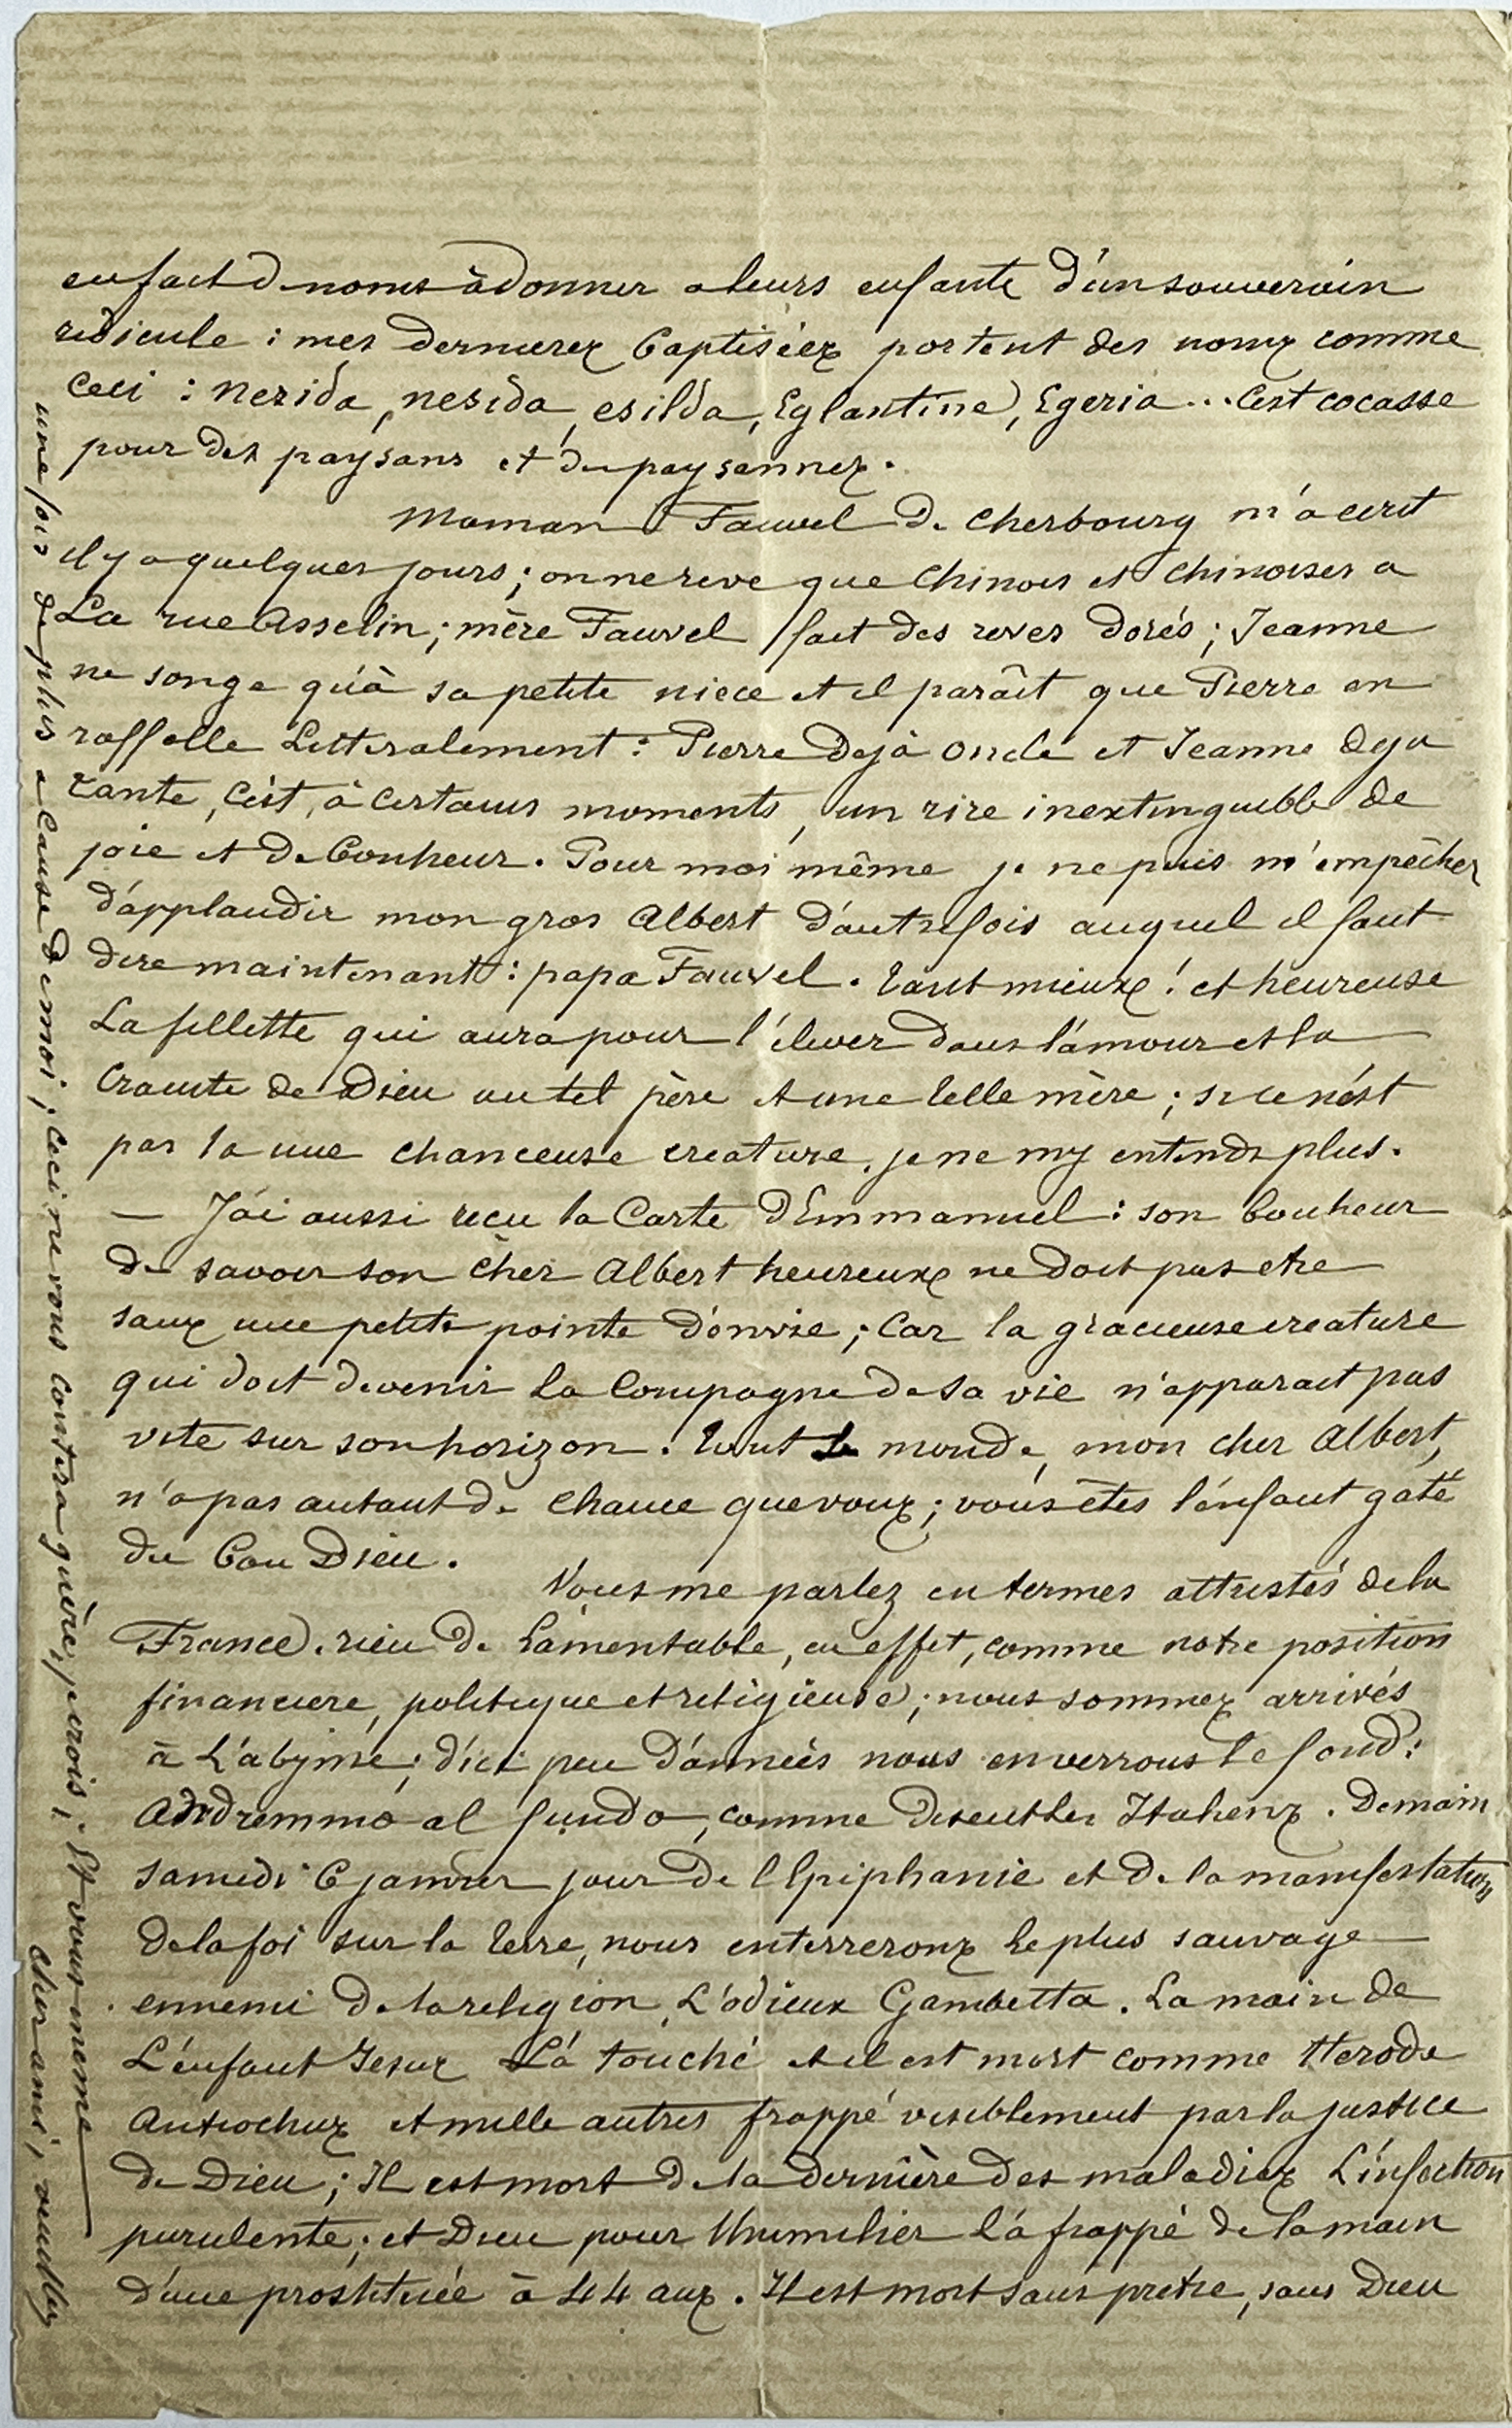 en fait de noms à donner a leurs enfants d'un souverain
ridicule : mes dernieres baptisées portent des noms comme
ceci : Nezida, nesida, esilda, Eglantine, Egeria... C'est cocasse
pour des paysans et des paysannes.
Maman Fauvel de Cherbourg m'a ecrit
il y a quelques jours ; on ne reve que Chinois et Chinoises a
La rue Asselin ; mère Fauvel fait des reves dorés ; Jeanne
ne songe qu'à sa petite niece et il paraît que Pierre en
raffolle litteralement : Pierre dejà oncle et Jeanne deja
tante, c'est, à certains moments, un rire inextinguible de
joie et de bonheur. Pour moi même je ne puis m'empêcher
d'applaudir mon gros Albert d'autrefois auquel il faut
dire maintenant : papa Fauvel. tant mieux ! et heureuse
La fillette qui aura pour l'élever dans l'amour et la
crainte de Dieu un tel père et une telle mère ; si ce n'est
pas là une chanceuse creature, je ne m'y entends plus.
— J'ai aussi reçu la Carte d'Emmanuel : son bonheur
de savoir son chèr Albert heureux ne doit pas etre
sans une petite pointe d'envie ; Car la gracieuse creature
qui doit devenir la Compagne de sa vie n'apparait pas
vite sur son horizon. tout le monde, mon cher Albert,
n'a pas autant de chance que vous ; vous êtes l'enfant gaté
du bon Dieu.
Vous me parlez en termes attristés de la
France. rien de lamentable, en effet, comme notre position
financiere, politique et religieuse ; nous sommes arrivés
à L'abyme ; d'ici peu d'années nous en verrons le fond :
Andremmo al fundo, comme disent les Italiens. Demain
samedi 6 janvier jour de l'Epiphanie et de la manifestation
de la foi sur la terre, nous enterrerons le plus sauvage
ennemi de la religion, L'odieux Gambetta. La main de
L'enfant Jesus L'a touché et il est mort comme Herode
Antiochus et mille autres frappé visiblement par la justice
de Dieu ; Il est mort de la dernière des maladies L'infection
purulente ; et Dieu pour l'humilier l'a frappé de la main
d'une prostituée à 44 ans. Il est mort sans pretre, sans Dieu
une fois de plus a cause de moi ; Ceci ne vous coutera guère, je crois, ; Et vous meme
cher ami, veuillez